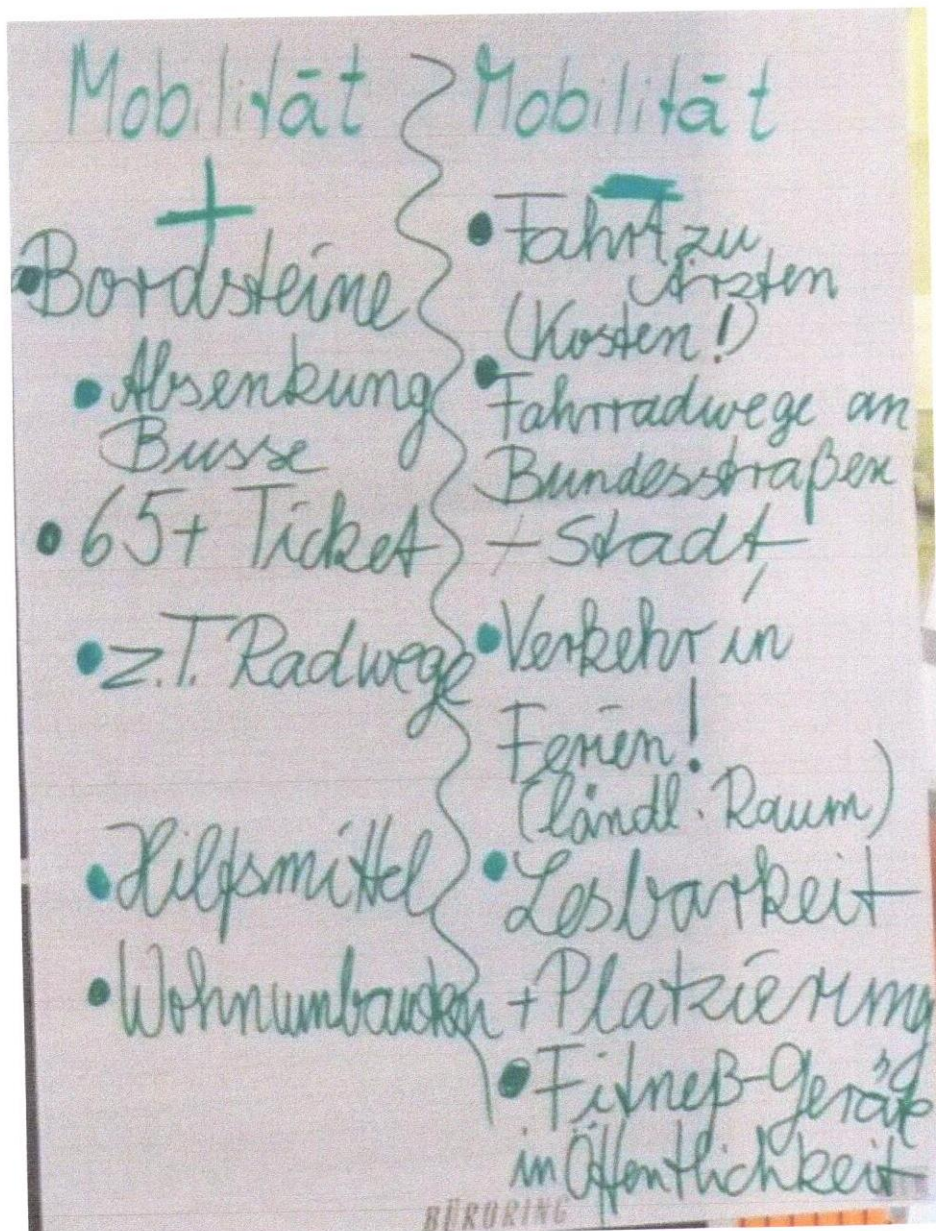 Mobilität
+
• Bordsteine
• Absenkung
Busse
• 65+ Ticket
• z.T. Radwege
• Hilfsmittel
• Wohnumbauten
Mobilität
-
• Fahrt zu
Ärzten
(Kosten!)
• Fahrradwege an
Bundesstraßen
+ Stadt
• Verkehr in
Ferien!
(ländl. Raum)
• Lesbarkeit
+ Platzierung
• Fitneß-Geräte
in Öffentlichkeit
BÜRORING